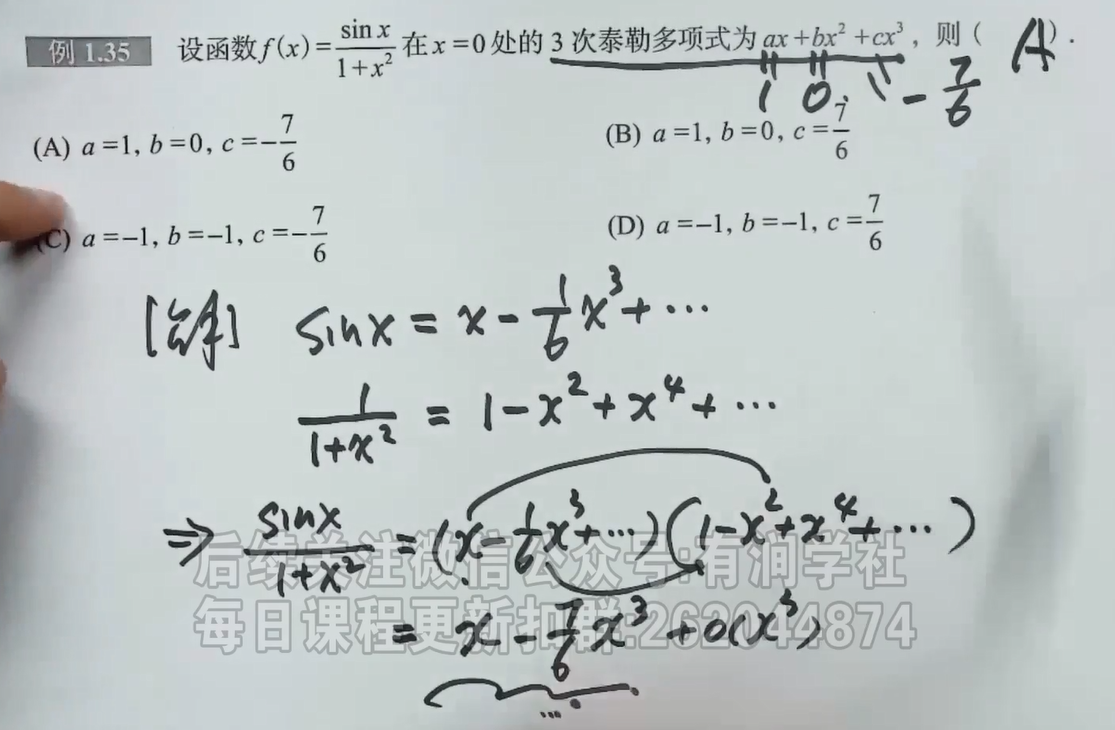 例 1.35 设函数 f(x) = sin x / (1+x²) 在 x=0 处的 3 次泰勒多项式为 ax+bx²+cx³，则（ A ）.
1 0. -7/6
(A) a=1, b=0, c=-7/6 (B) a=1, b=0, c=7/6
(C) a=-1, b=-1, c=-7/6 (D) a=-1, b=-1, c=7/6
[解] sinx = x - 1/6 x³ + ⋯
1/(1+x²) = 1 - x² + x⁴ + ⋯
⇒ sinx/(1+x²) = (x - 1/6 x³ + ⋯)(1 - x² + x⁴ + ⋯)
= x - 7/6 x³ + o(x³)
...
后续关注微信公众号:有润学社
每日课程更新扣群:262044874